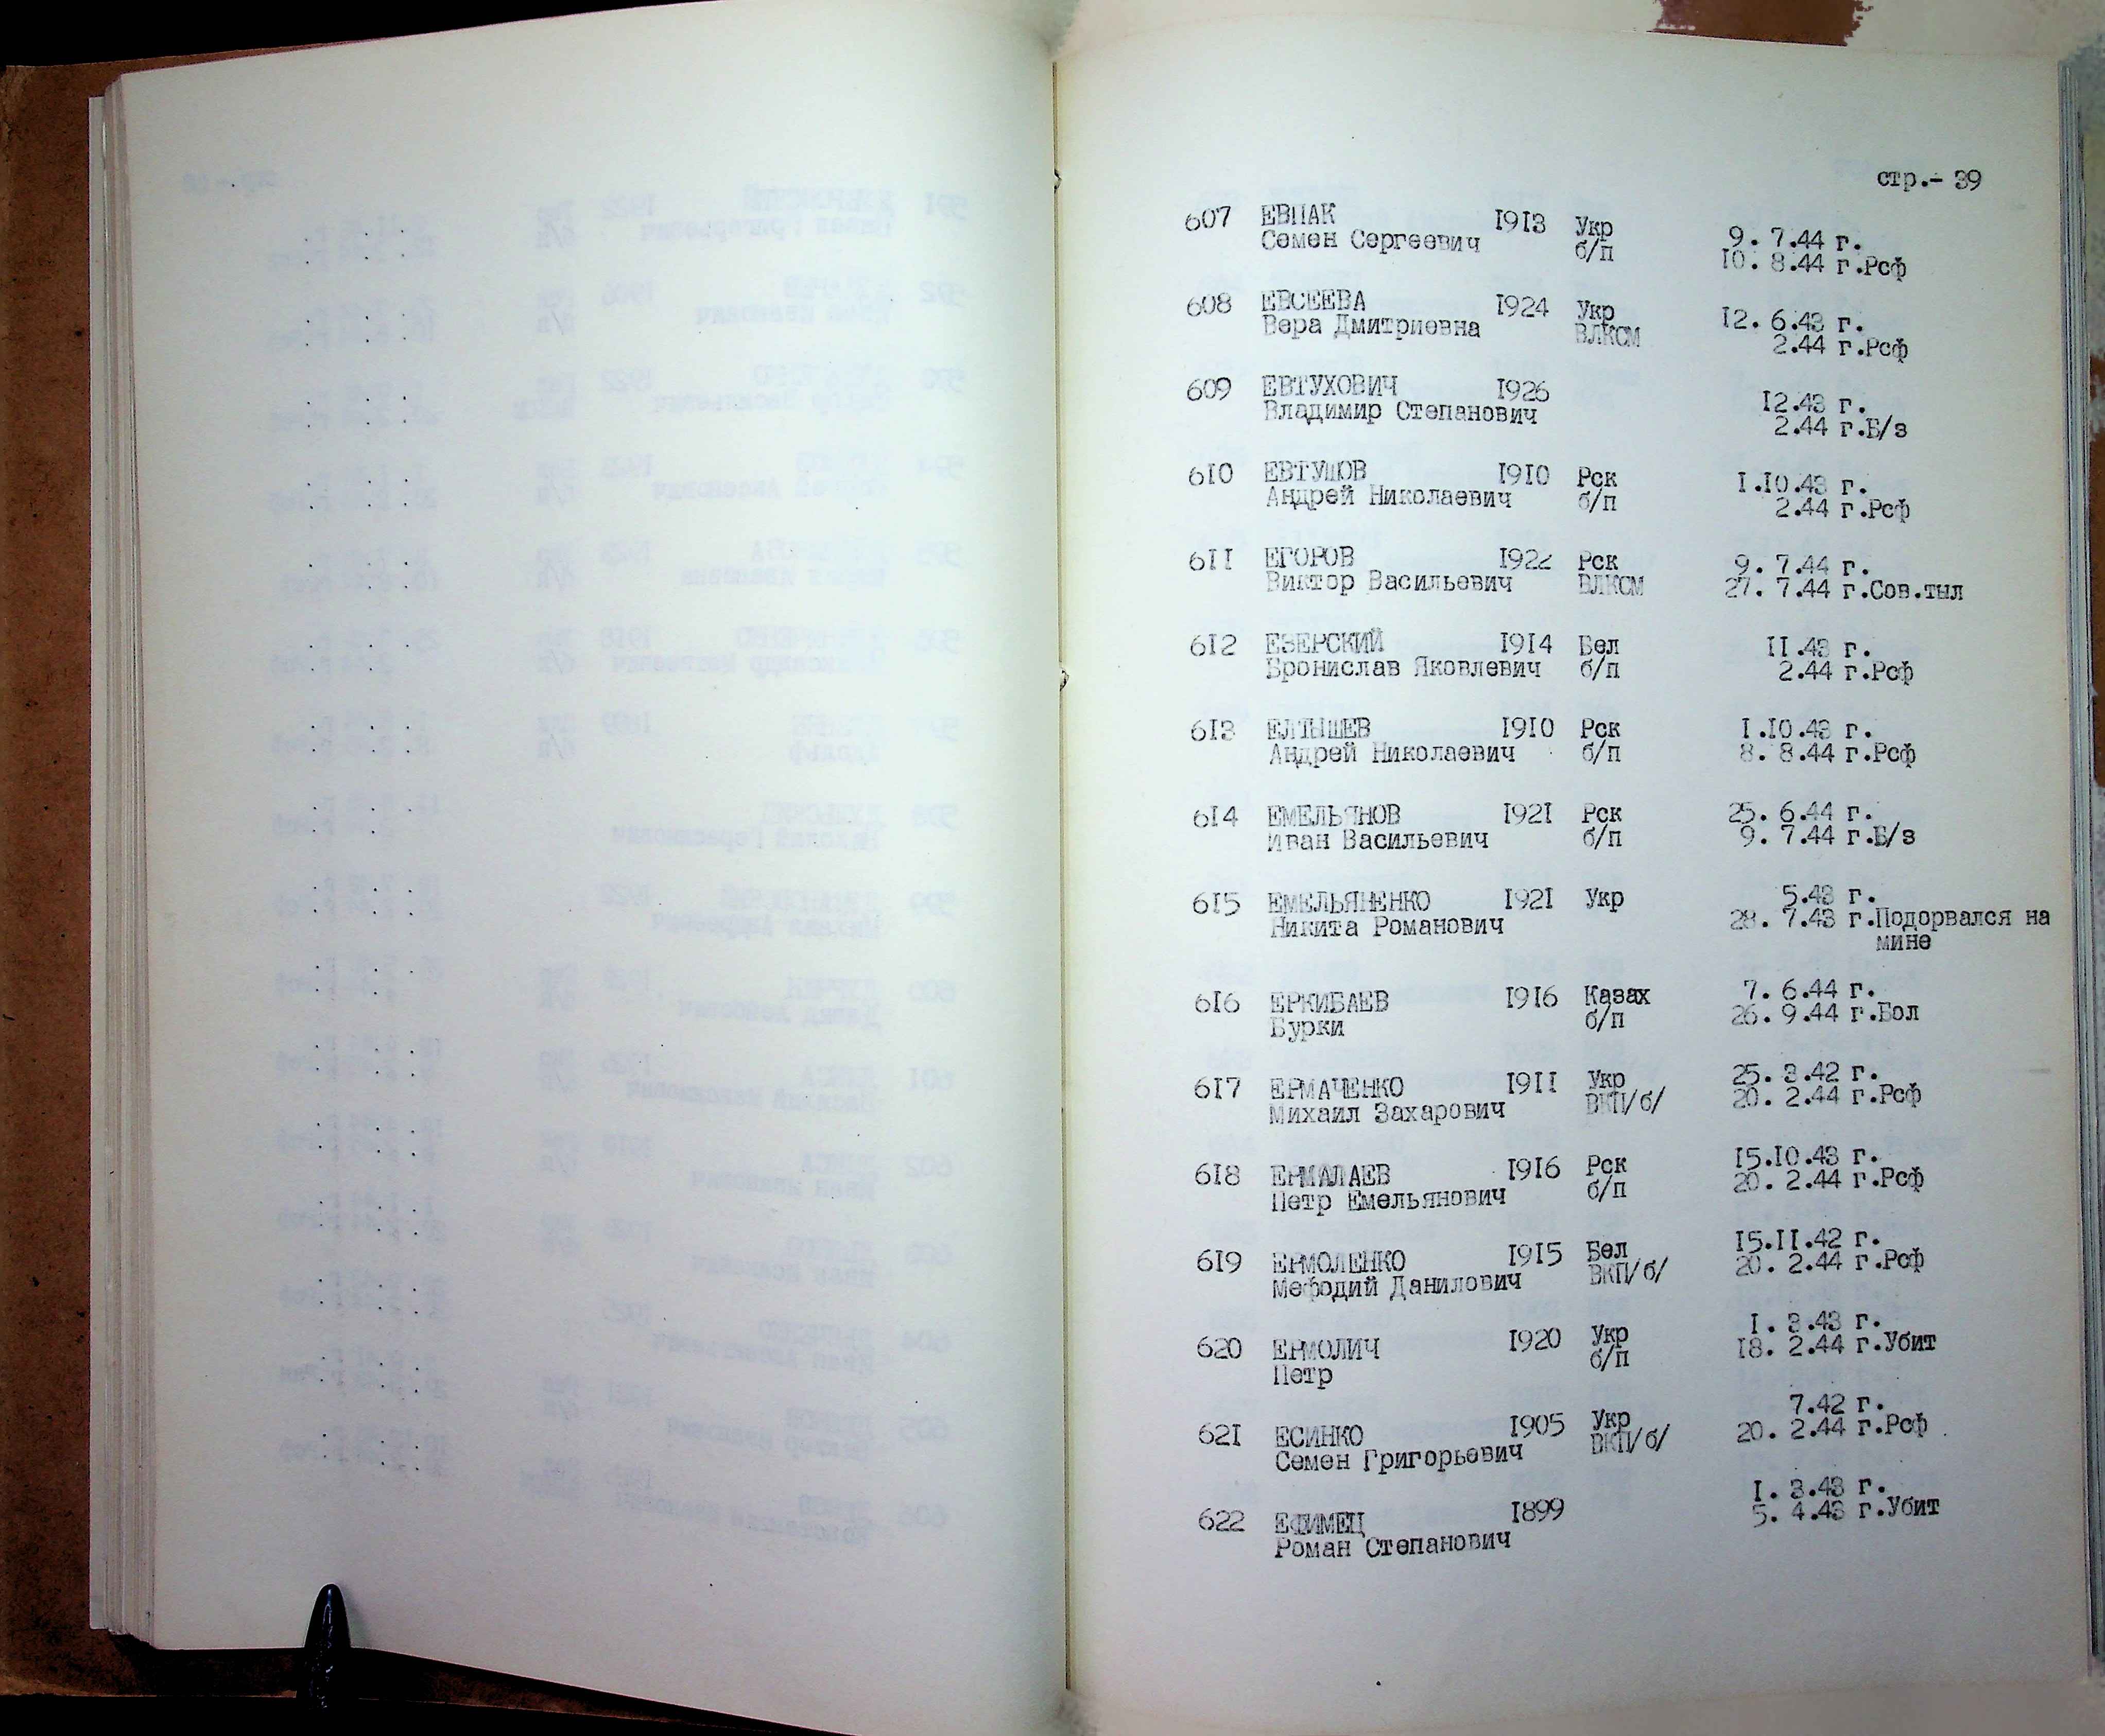 стр.- 39
607 ЕВПАК 1913 Укр 9. 7.44 г.
Семен Сергеевич б/п 10. 8.44 г.Рсф
608 ЕВСЕЕВА 1924 Укр 12. 6.43 г.
Вера Дмитриевна ВЛКСМ 2.44 г.Рсф
609 ЕВТУХОВИЧ 1926 12.43 г.
Владимир Степанович 2.44 г.Б/з
610 ЕВТУШОВ 1910 Рск 1.10.43 г.
Андрей Николаевич б/п 2.44 г.Рсф
611 ЕГОРОВ 1922 Рск 9. 7.44 г.
Виктор Васильевич ВЛКСМ 27. 7.44 г.Сов.тыл
612 ЕЗЕРСКИЙ 1914 Бел 11.43 г.
Бронислав Яковлевич б/п 2.44 г.Рсф
613 ЕЛТЫШЕВ 1910 Рск 1.10.43 г.
Андрей Николаевич б/п 8. 8.44 г.Рсф
614 ЕМЕЛЬЯНОВ 1921 Рск 25. 6.44 г.
Иван Васильевич б/п 9. 7.44 г.Б/з
615 ЕМЕЛЬЯНЕНКО 1921 Укр 5.43 г.
Никита Романович 28. 7.43 г.Подорвался на
мине
616 ЕРКИБАЕВ 1916 Казах 7. 6.44 г.
Бурки б/п 26. 9.44 г.Бол
617 ЕРМАЧЕНКО 1911 Укр 25. 3.42 г.
Михаил Захарович ВКП/б/ 20. 2.44 г.Рсф
618 ЕРМАЛАЕВ 1916 Рск 15.10.43 г.
Петр Емельянович б/п 20. 2.44 г.Рсф
619 ЕРМОЛЕНКО 1915 Бел 15.11.42 г.
Мефодий Данилович ВКП/б/ 20. 2.44 г.Рсф
620 ЕРМОЛИЧ 1920 Укр 1. 3.43 г.
Петр б/п 18. 2.44 г.Убит
621 ЕСИНКО 1905 Укр 7.42 г.
Семен Григорьевич ВКП/б/ 20. 2.44 г.Рсф
622 ЕФИМЕЦ 1899 1. 3.43 г.
Роман Степанович 5. 4.43 г.Убит